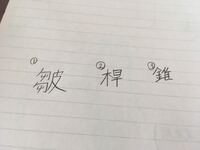 ①皺 ②桿 ③錐